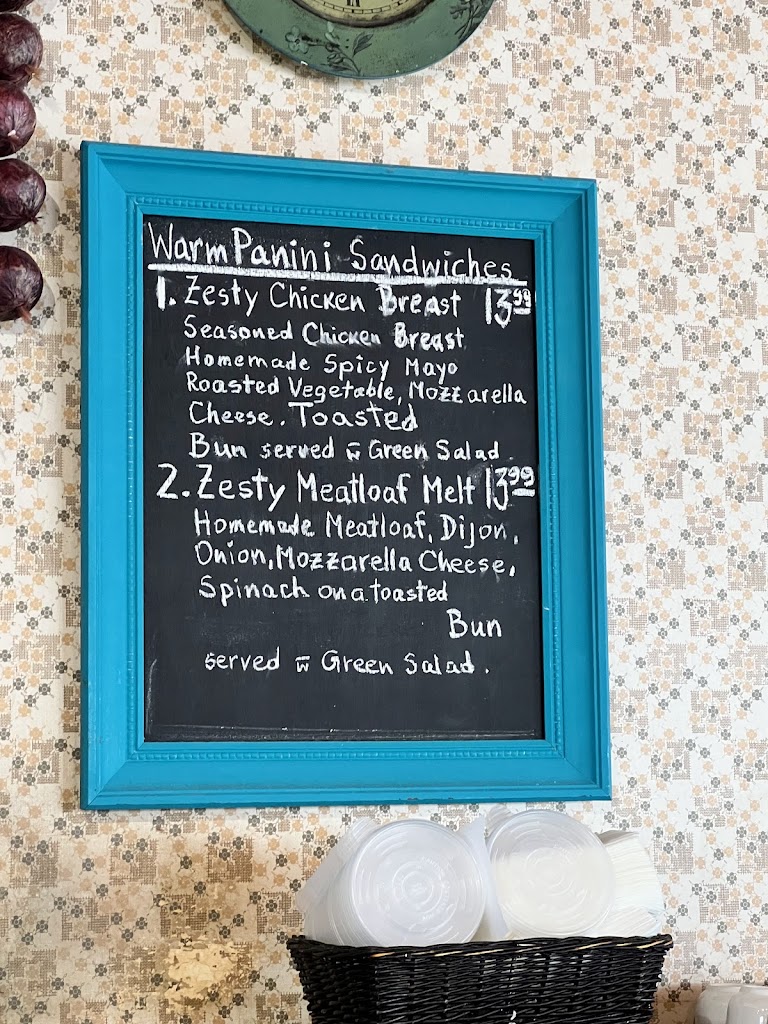 Warm Panini Sandwiches
1. Zesty Chicken Breast 13.99
Seasoned Chicken Breast
Homemade Spicy Mayo
Roasted Vegetable, Mozzarella
Cheese. Toasted
Bun served w̅ Green Salad.
2. Zesty Meatloaf Melt 13.99
Homemade Meatloaf, Dijon,
Onion, Mozzarella Cheese,
Spinach on a toasted
Bun
served w̅ Green Salad.